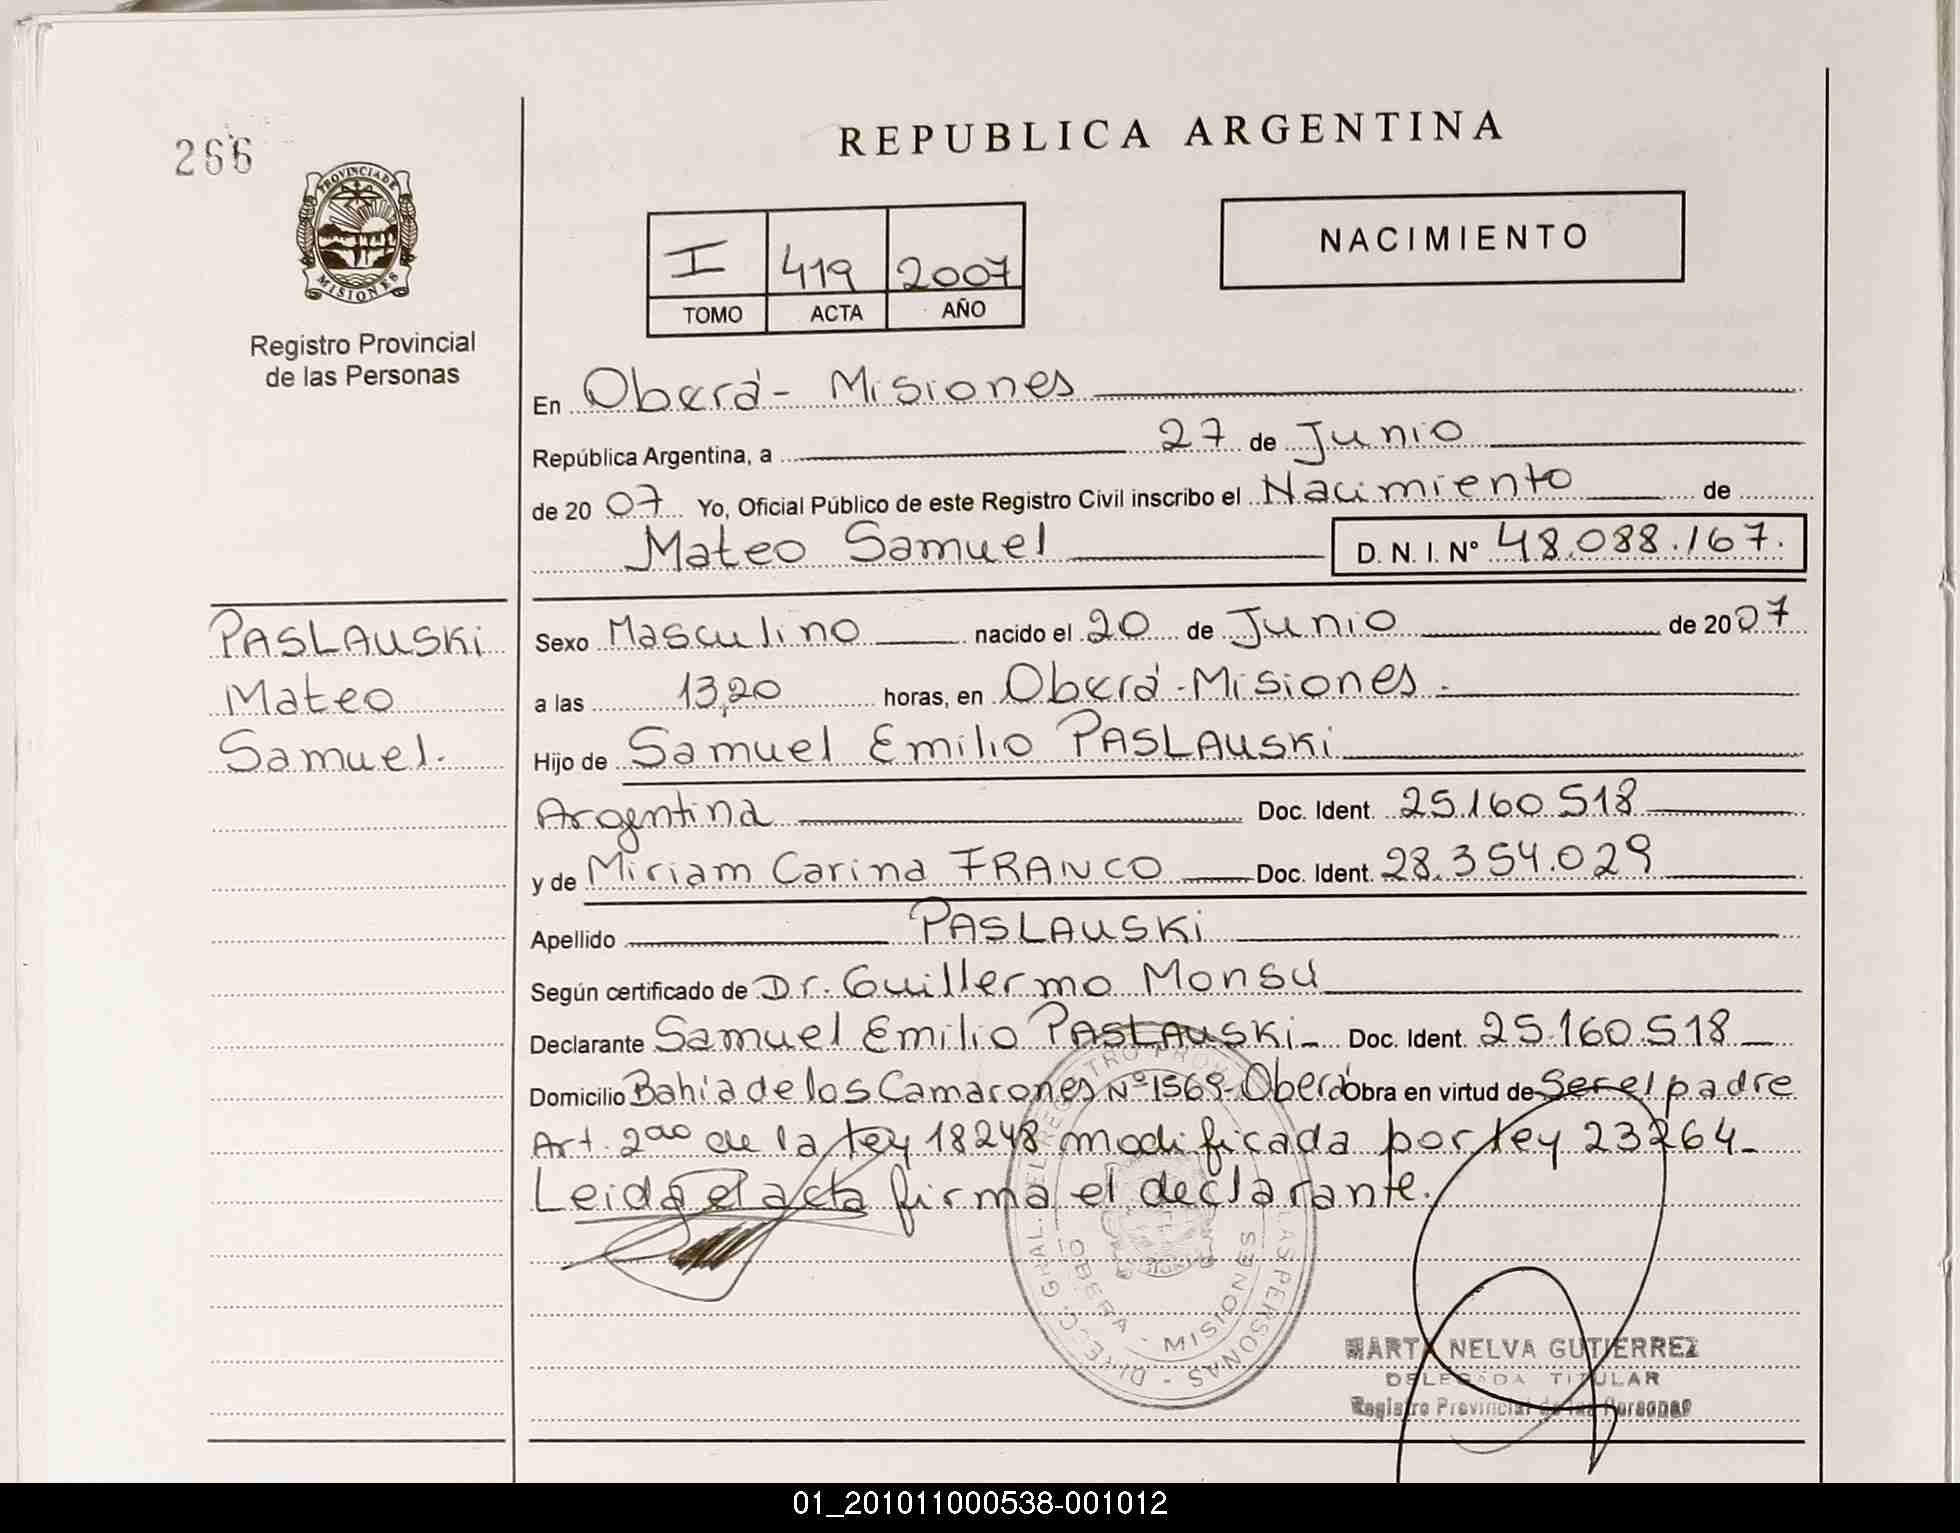 266
PROVINCIA DE
MISIONES
Registro Provincial
de las Personas
REPUBLICA ARGENTINA
I 419 2007
TOMO ACTA AÑO
NACIMIENTO
En Oberá - Misiones
República Argentina, a 27 de Junio
de 20 07 Yo, Oficial Público de este Registro Civil inscribo el Nacimiento de
Mateo Samuel D. N. I. Nº 48.088.167.
PASLAUSKi
Mateo
Samuel.
Sexo Masculino nacido el 20 de Junio de 20 07
a las 13,20 horas, en Oberá - Misiones.
Hijo de Samuel Emilio PASLAUSKi
Argentina Doc. Ident. 25.160.518
y de Miriam Carina FRANCO Doc. Ident. 28.354.029
Apellido PASLAUSKi
Según certificado de Dr. Guillermo Monsu
Declarante Samuel Emilio PASLAUSKi Doc. Ident. 25.160.518
Domicilio Bahia de los Camarones Nº 1569 - Oberá Obra en virtud de Ser el padre
Art. 2do de la Ley 18248 modificada por Ley 23264
Leida el acta firma el declarante.
DIREC. GRAL. DEL REGISTRO PROV. LAS PERSONAS
OBERA - MISIONES
MARTA NELVA GUTIERREZ
DELEGADA TITULAR
Registro Provincial de las Personas
01_201011000538-001012